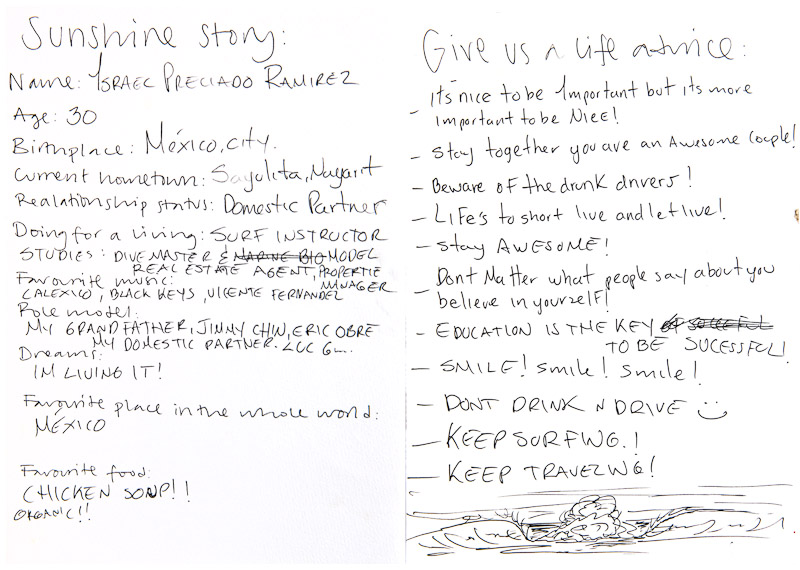 Sunshine story:
Name: ISRAEL PRECIADO RAMIREZ
Age: 30
Birthplace: México, city.
Current hometown: Sayulita, Nayarit
Realationship status: Domestic Partner
Doing for a living: SURF INSTRUCTOR
STUDIES: DIVE MASTER & MARINE BIO MODEL
REAL ESTATE AGENT, PROPERTIE
MINAGER
Favourite music:
CALEXICO, BLACK KEYS, VICENTE FERNANDEL
Role model:
MY GRANDFATHER, JINNY CHIN, ERIC OBRE
MY DOMESTIC PARTNER. LUC
Dreams:
IM LIVING IT!
Favourite place in the whole world:
MÉXICO
Favourite food:
CHICKEN SOUP!!
ORGANIC!!
Give us a life advice:
- it's nice to be Important but its more
important to be Nice!
- Stay together you are an Awesome Couple!
- Beware of the drunk drivers!
- Life's to short live and let live!
- Stay AWESOME!
- Dont Matter what people say about you
believe in yourself!
- EDUCATION IS THE KEY
TO BE SUCESSFUL!
- SMILE! Smile! Smile!
- DONT DRINK N DRIVE
- KEEP SURFING.!
- KEEP TRAVELING!